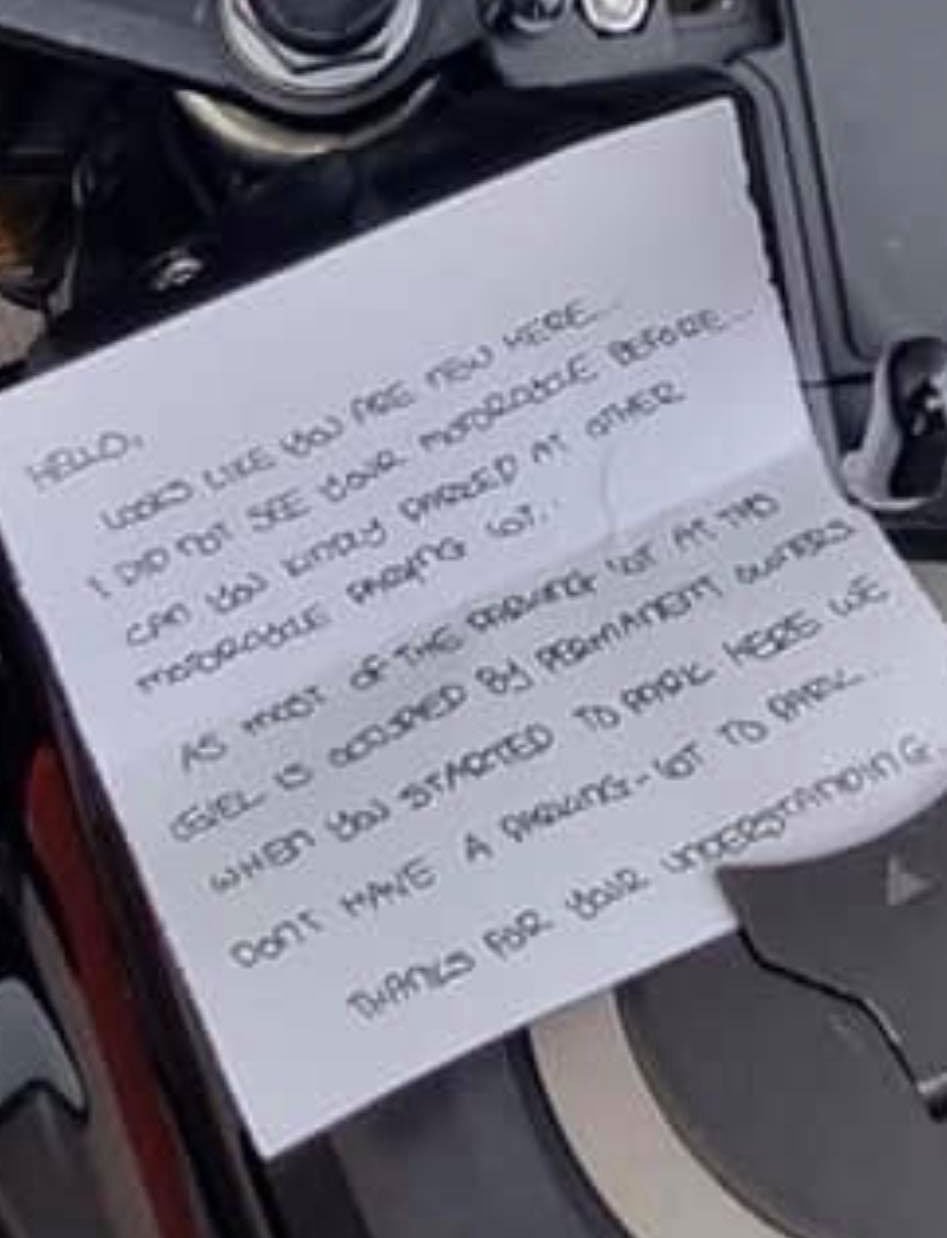 HELLO,
LOOKS LIKE YOU ARE NEW HERE...
I DID NOT SEE YOUR MOTORCYCLE BEFORE...
CAN YOU KINDLY PARKED AT OTHER
MOTORCYCLE PARKING LOT..
AS MOST OF THE PARKING LOT AT THIS
LEVEL IS OCCUPIED BY PERMANENT OWNERS
WHEN YOU STARTED TO PARK HERE WE
DONT HAVE A PARKING-LOT TO PARK...
THANKS FOR YOUR UNDERSTANDING.